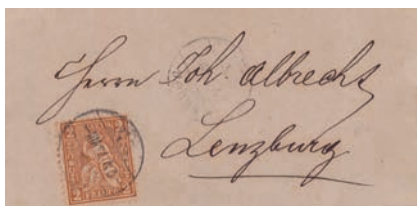 Herrn Joh. Albrecht
Lenzburg
2